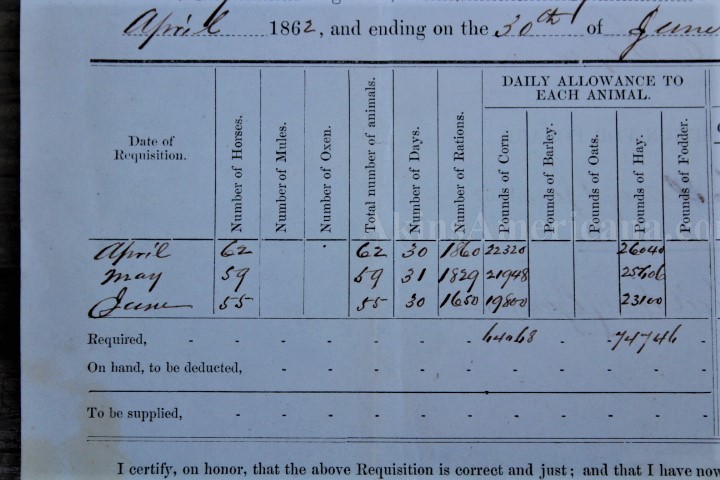 April 1862, and ending on the 30th of June
DAILY ALLOWANCE TO
EACH ANIMAL.
Date of
Requisition.
Number of Horses.
Number of Mules.
Number of Oxen.
Total number of animals.
Number of Days.
Number of Rations.
Pounds of Corn.
Pounds of Barley.
Pounds of Oats.
Pounds of Hay.
Pounds of Fodder.
AkinsAmericana.co
April 62 62 30 1860 22320 26040
May 59 59 31 1829 21948 25606
June 55 55 30 1650 19800 23100
Required, - - - - - - 64068 - - 74746 -
On hand, to be deducted, - - - - - - - - -
To be supplied, - - - - - - - - - - -
I certify, on honor, that the above Requisition is correct and just; and that I have now